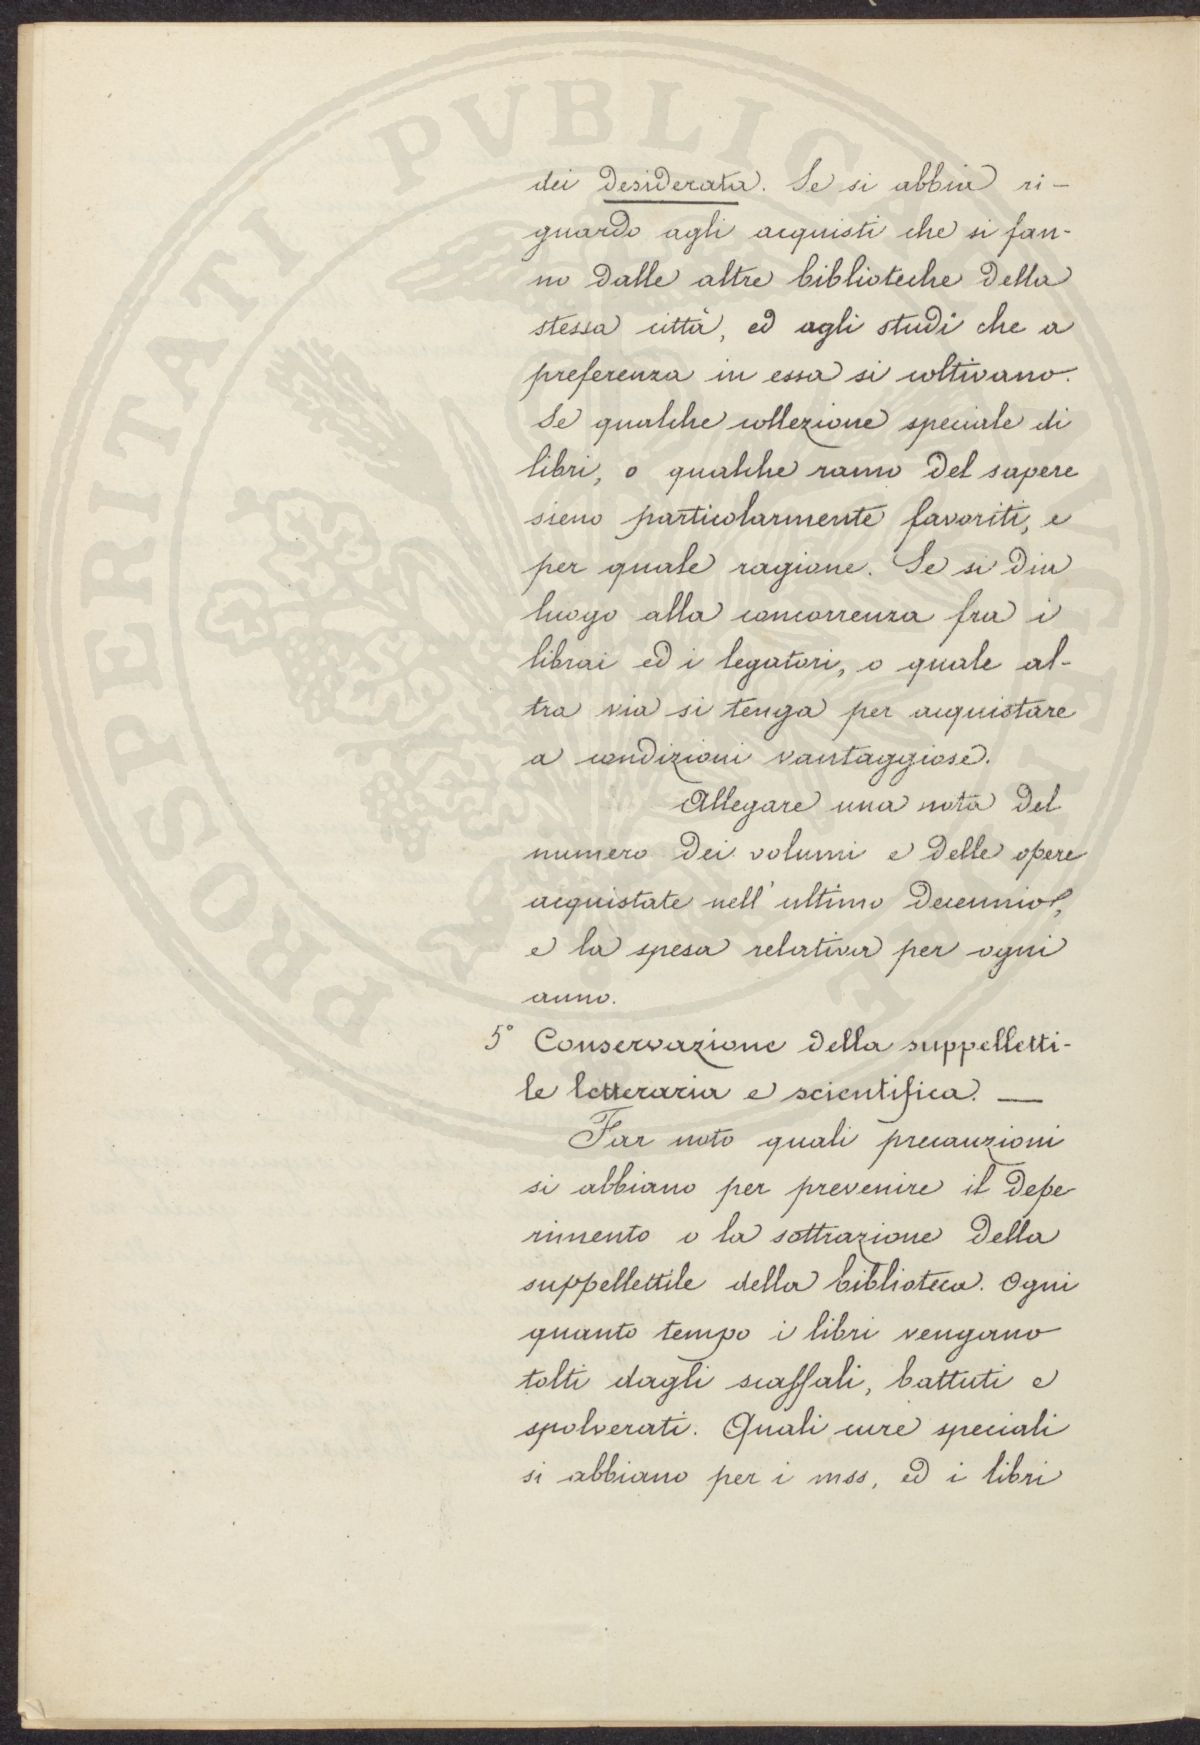 dei desiderata. Se si abbia ri-
guardo agli acquisti che si fan-
no dalle altre biblioteche della
stessa città, ed agli studi che a
preferenza in essa si coltivano.
Se qualche collezione speciale di
libri, o qualche ramo del sapere
sieno particolarmente favoriti, e
per quale ragione. Se si dia
luogo alla concorrenza fra i
librai ed i legatori, o quale al-
tra via si tenga per acquistare
a condizioni vantaggiose.
Allegare una nota del
numero dei volumi e delle opere
acquistate nell'ultimo decennio,
e la spesa relativa per ogni
anno.
5° Conservazione della suppelletti-
le letteraria e scientifica. —
Far noto quali precauzioni
si abbiano per prevenire il depe
rimento o la sottrazione della
suppellettile della biblioteca. Ogni
quanto tempo i libri vengano
tolti dagli scaffali, battuti e
spolverati. Quali cure speciali
si abbiano per i mss, ed i libri
PROSPERITATI PVBLICAE AVGENDAE